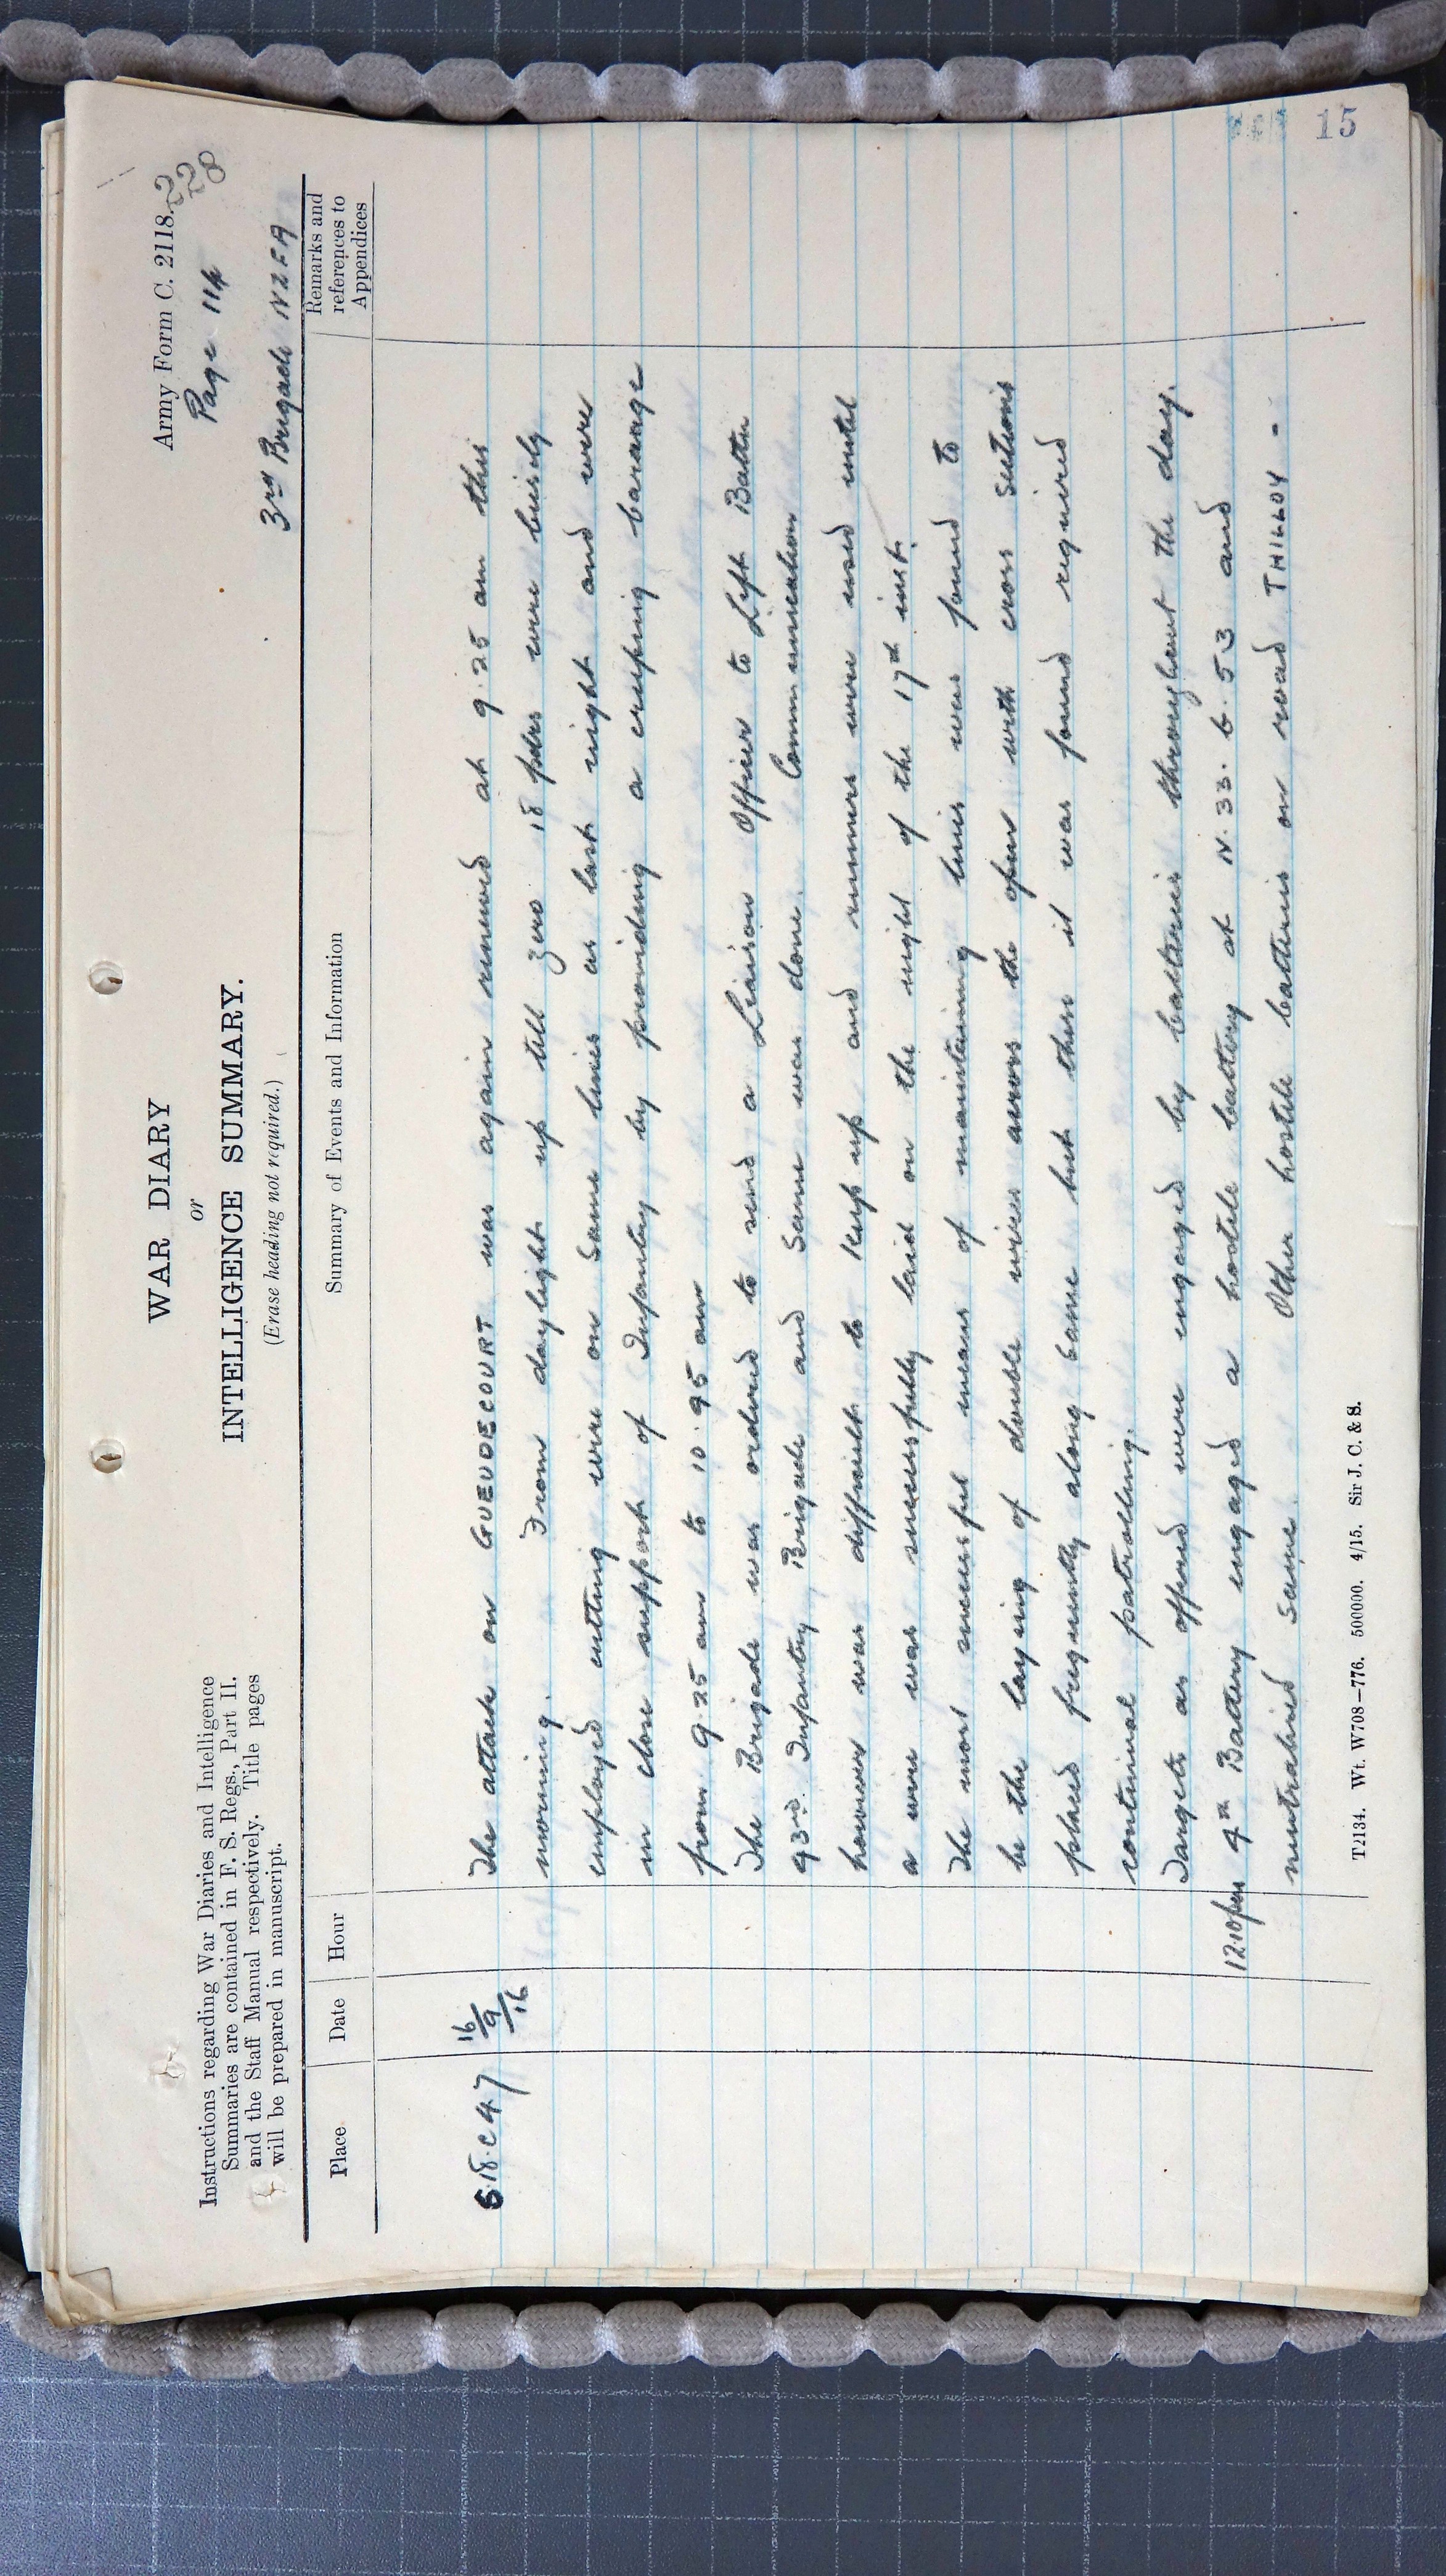 Army Form C. 2118.
228
Page 114
3rd Brigade NZFA
WAR DIARY
or
INTELLIGENCE SUMMARY.
(Erase heading not required.)
Instructions regarding War Diaries and Intelligence
Summaries are contained in F. S. Regs., Part II.
and the Staff Manual respectively. Title pages
will be prepared in manuscript.
Place Date Hour Summary of Events and Information Remarks and references to Appendices
S.18.c 4.7 16/9/16 The attack on GUEUDECOURT was again renewed at 9.25 am this
morning. From daylight up till zero 18 pdrs were busily
employed cutting wire on same lines as last night and were
in close support of Infantry by providing a creeping barage
from 9.25 am to 10.45 am
The Brigade was ordered to send a Liaison Officer to Left Battn
43rd Infantry Brigade and same was done. Communication
however was difficult to keep up and runners were used until
a wire was successfully laid on the night of the 17th inst.
The most successful means of maintaining lines was found to
be the laying of double wires across the open with cross sections
placed frequently along same but then it was found required
continual patrolling.
Targets as offered were engaged by batteries throughout the day.
12.10pm 4th Battery engaged a hostile battery at N.33.b.53 and
neutralised same. Other hostile batteries on road THILLOY -
T2134. Wt. W708—776. 500000. 4/15. Sir J. C. & S.
15